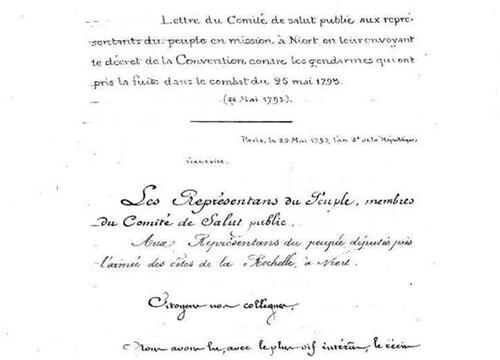 Lettre du Comité de salut public aux repré-
sentants du peuple en mission à Niort en leur envoyant
le décret de la Convention contre les gendarmes qui ont
pris la fuite dans le combat du 25 mai 1793.
(29 Mai 1793).
Paris, le 29 Mai 1793, l'an 2e de la République
francaise.
Les Représentans du Peuple, membres
du Comité de Salut public,
Aux Représentans du peuple députés près
l'armée des côtes de la Rochelle, à Niort.
Citoyens nos collègues,
Nous avons lu, avec le plus vif intérêt, le récit